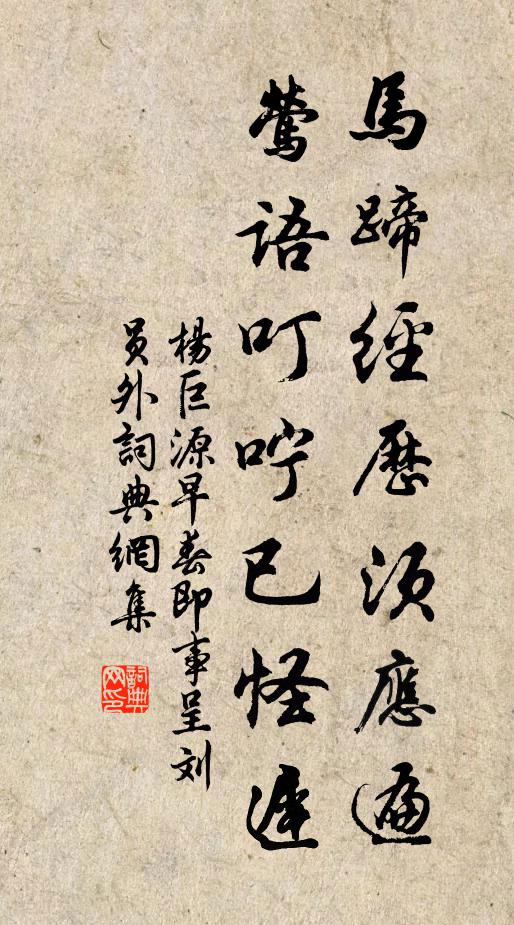 馬蹄經歷須應遍
鶯語叮咛已怪遲
楊巨源早春即事呈刘
員外詞典網集
詞典
网印